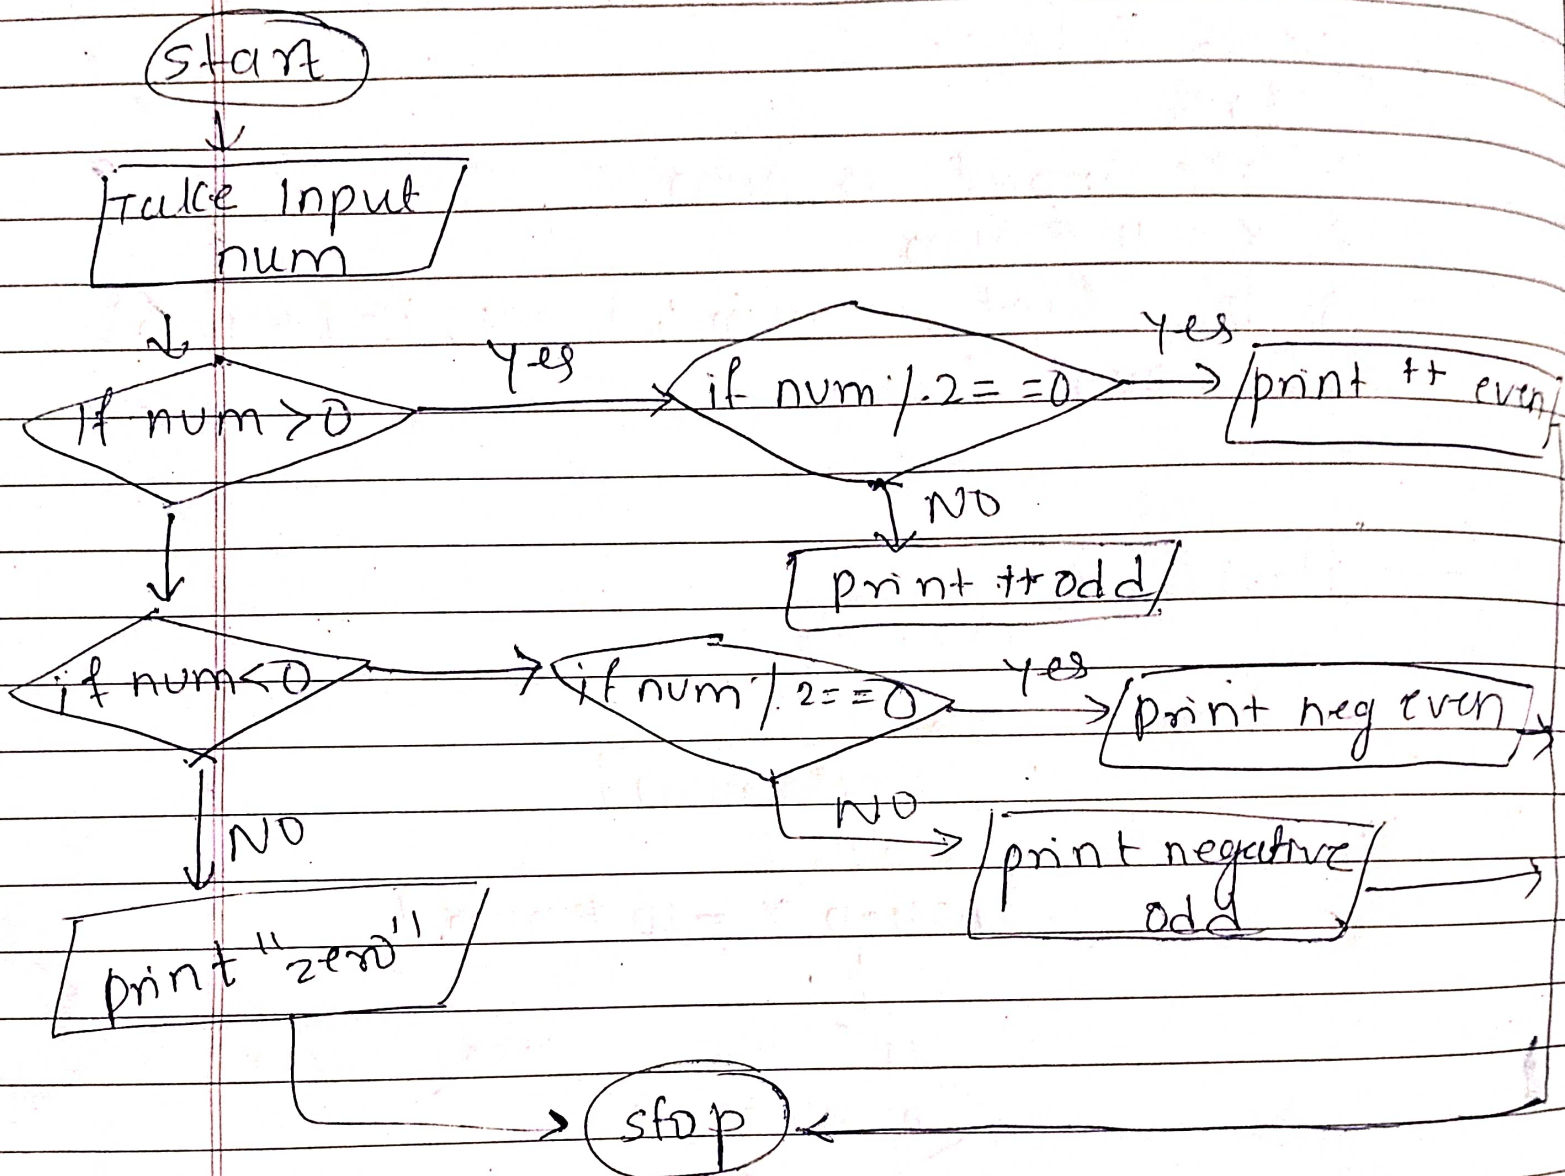 start
Take Input
num
yes
yes
If num>0
if num%2==0
print ++ even
NO
print ++ odd
if num<0
if num%2==0
yes
print neg even
NO
NO
print negative
odd
print "zero"
stop